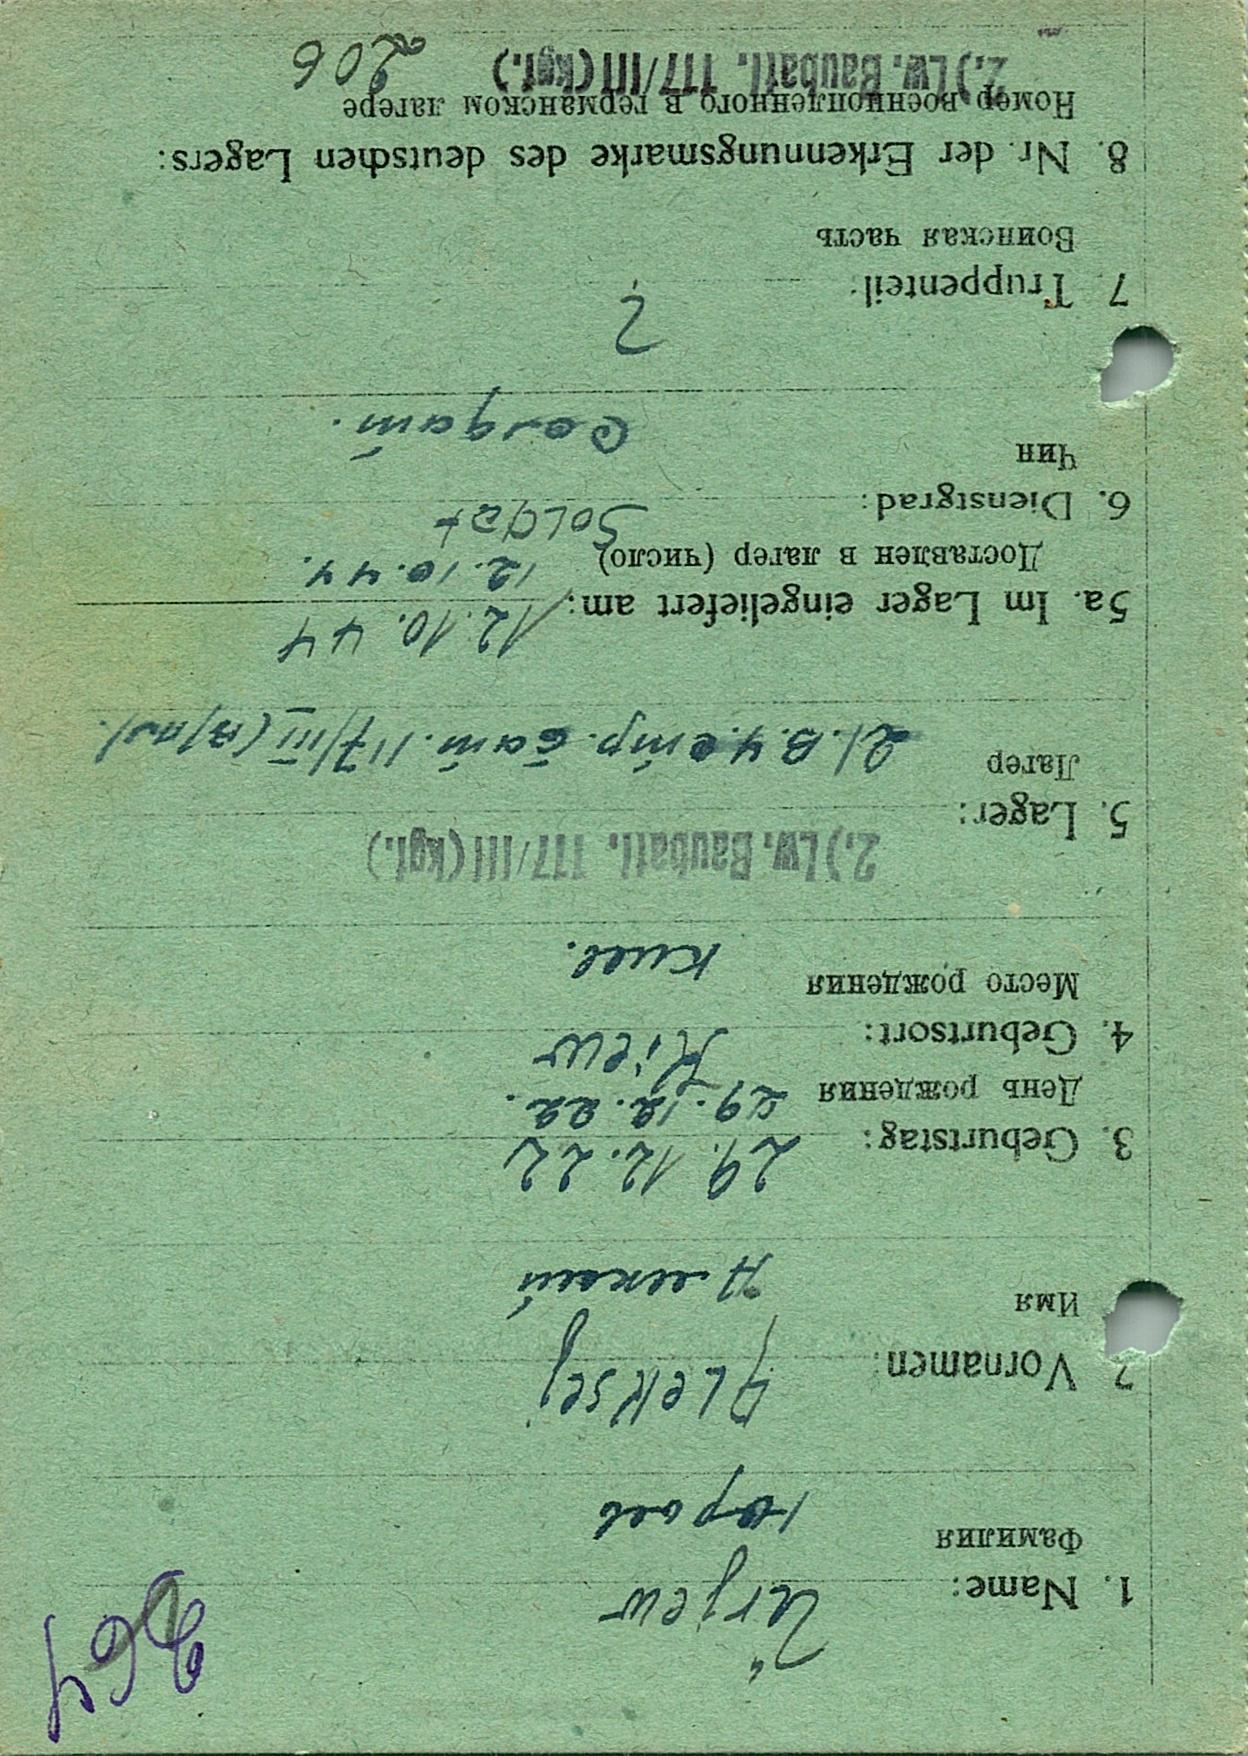 364
1. Name: Jürjew
Фамилия Юрьев
2 Vornamen: Aleksej
Имя Алексей
3. Geburtstag: 29.12.22
День рождения 29.12.22.
4. Geburtsort: Kiew
Место рождения Киев.
2.) Lw. Baubatl. 117/III (kgf.)
5. Lager:
Лагер 2/. В.Ч. стр. бат. 117/III (в/пл).
5a. Im Lager eingeliefert am: 12.10.44
Доставлен в лагер (число) 12.10.44.
6. Dienstgrad: Soldat
Чин Солдат.
7 Truppenteil: ?
Воинская часть
8. Nr. der Erkennungsmarke des deutschen Lagers:
Номер военнопленного в германском лагере
2.) Lw. Baubatl. 117/III (kgf.) 206